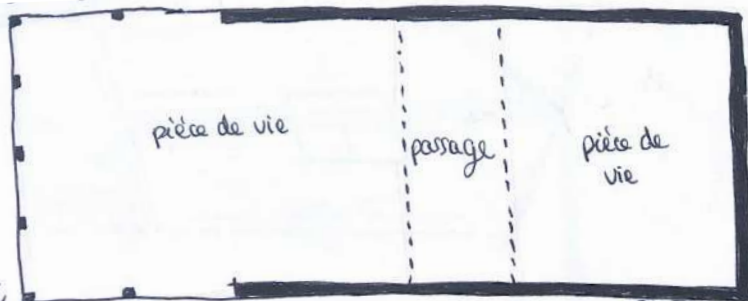 pièce de vie
passage
pièce de
vie